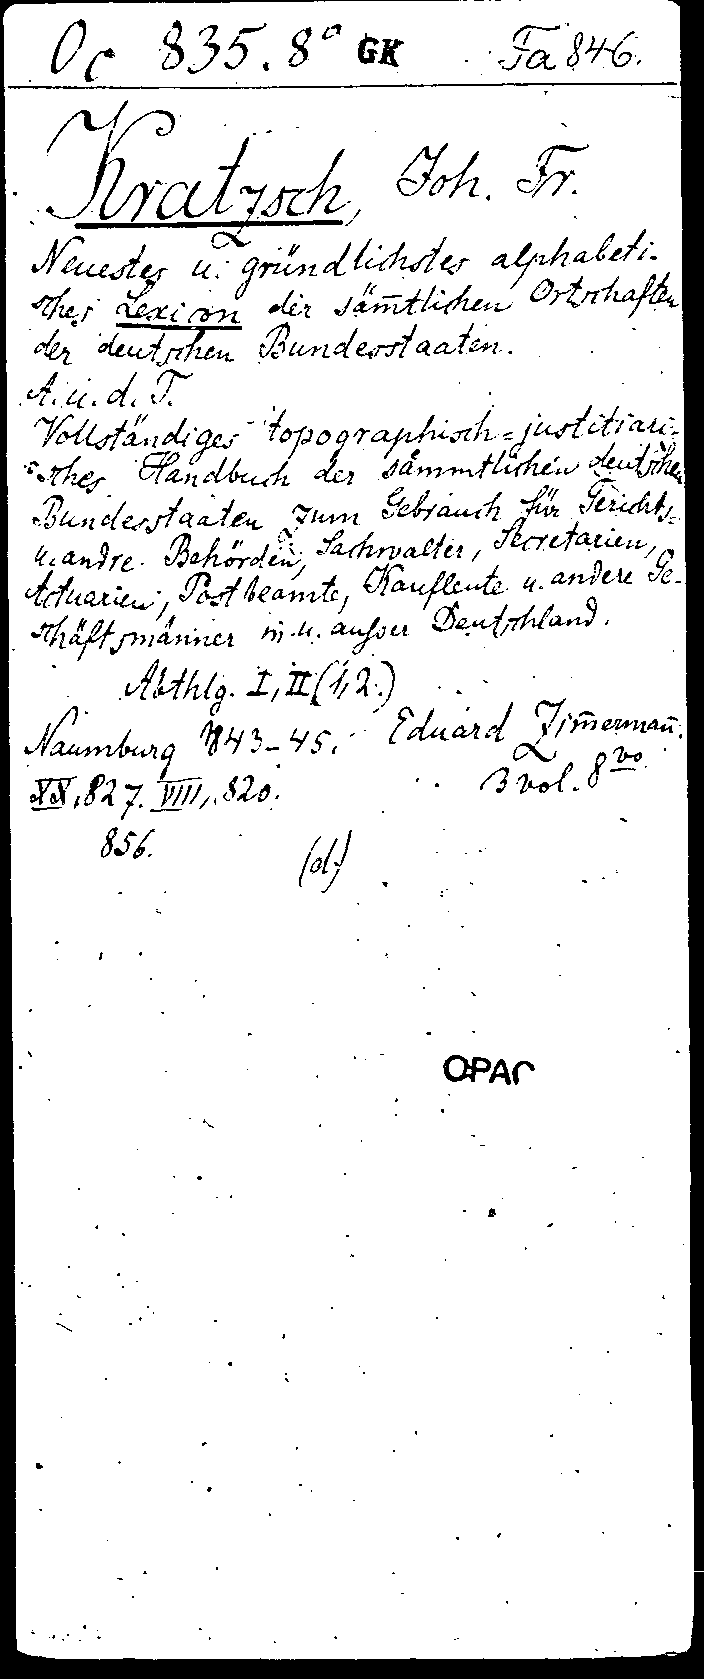 Oc 835.8° GK Fa 846.
Kratzsch, Joh. Fr.
Neuestes u. gründlichstes alphabeti-
sches Lexicon der säm̄tlichen Ortschaften
der deutschen Bundesstaaten.
A. u. d. T.
Vollständiges topographisch=justitiari-
sches Handbuch der sämmtlichen deutschen
Bundesstaaten zum Gebrauch für Gerichts-
u. andre Behörden, Sachwalter, Secretarien,
Actuarien, Postbeamte, Kaufleute u. andere Ge-
schäftsmänner in u. ausser Deutschland.
Abthlg. I, II (1, 2.)
Naumburg 1843-45. Eduard Zim̄erman̄.
XX, 827. VIII, 820. 3 vol. 8vo
856. (d.)
OPAC